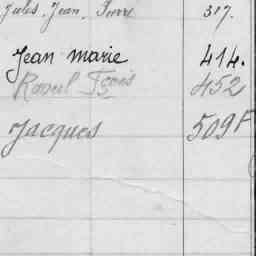 Jules, Jean, Pierre 317.
Jean marie 414.
Raoul Fçois 452
Jacques 509F